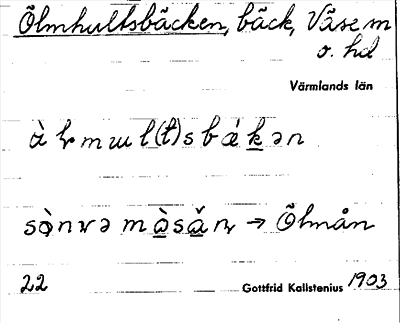 Ölmhultsbäcken, bäck, Väse sn
o. hd
Värmlands län
sònrə màsăn → Ölmån
22 Gottfrid Kallstenius 1903